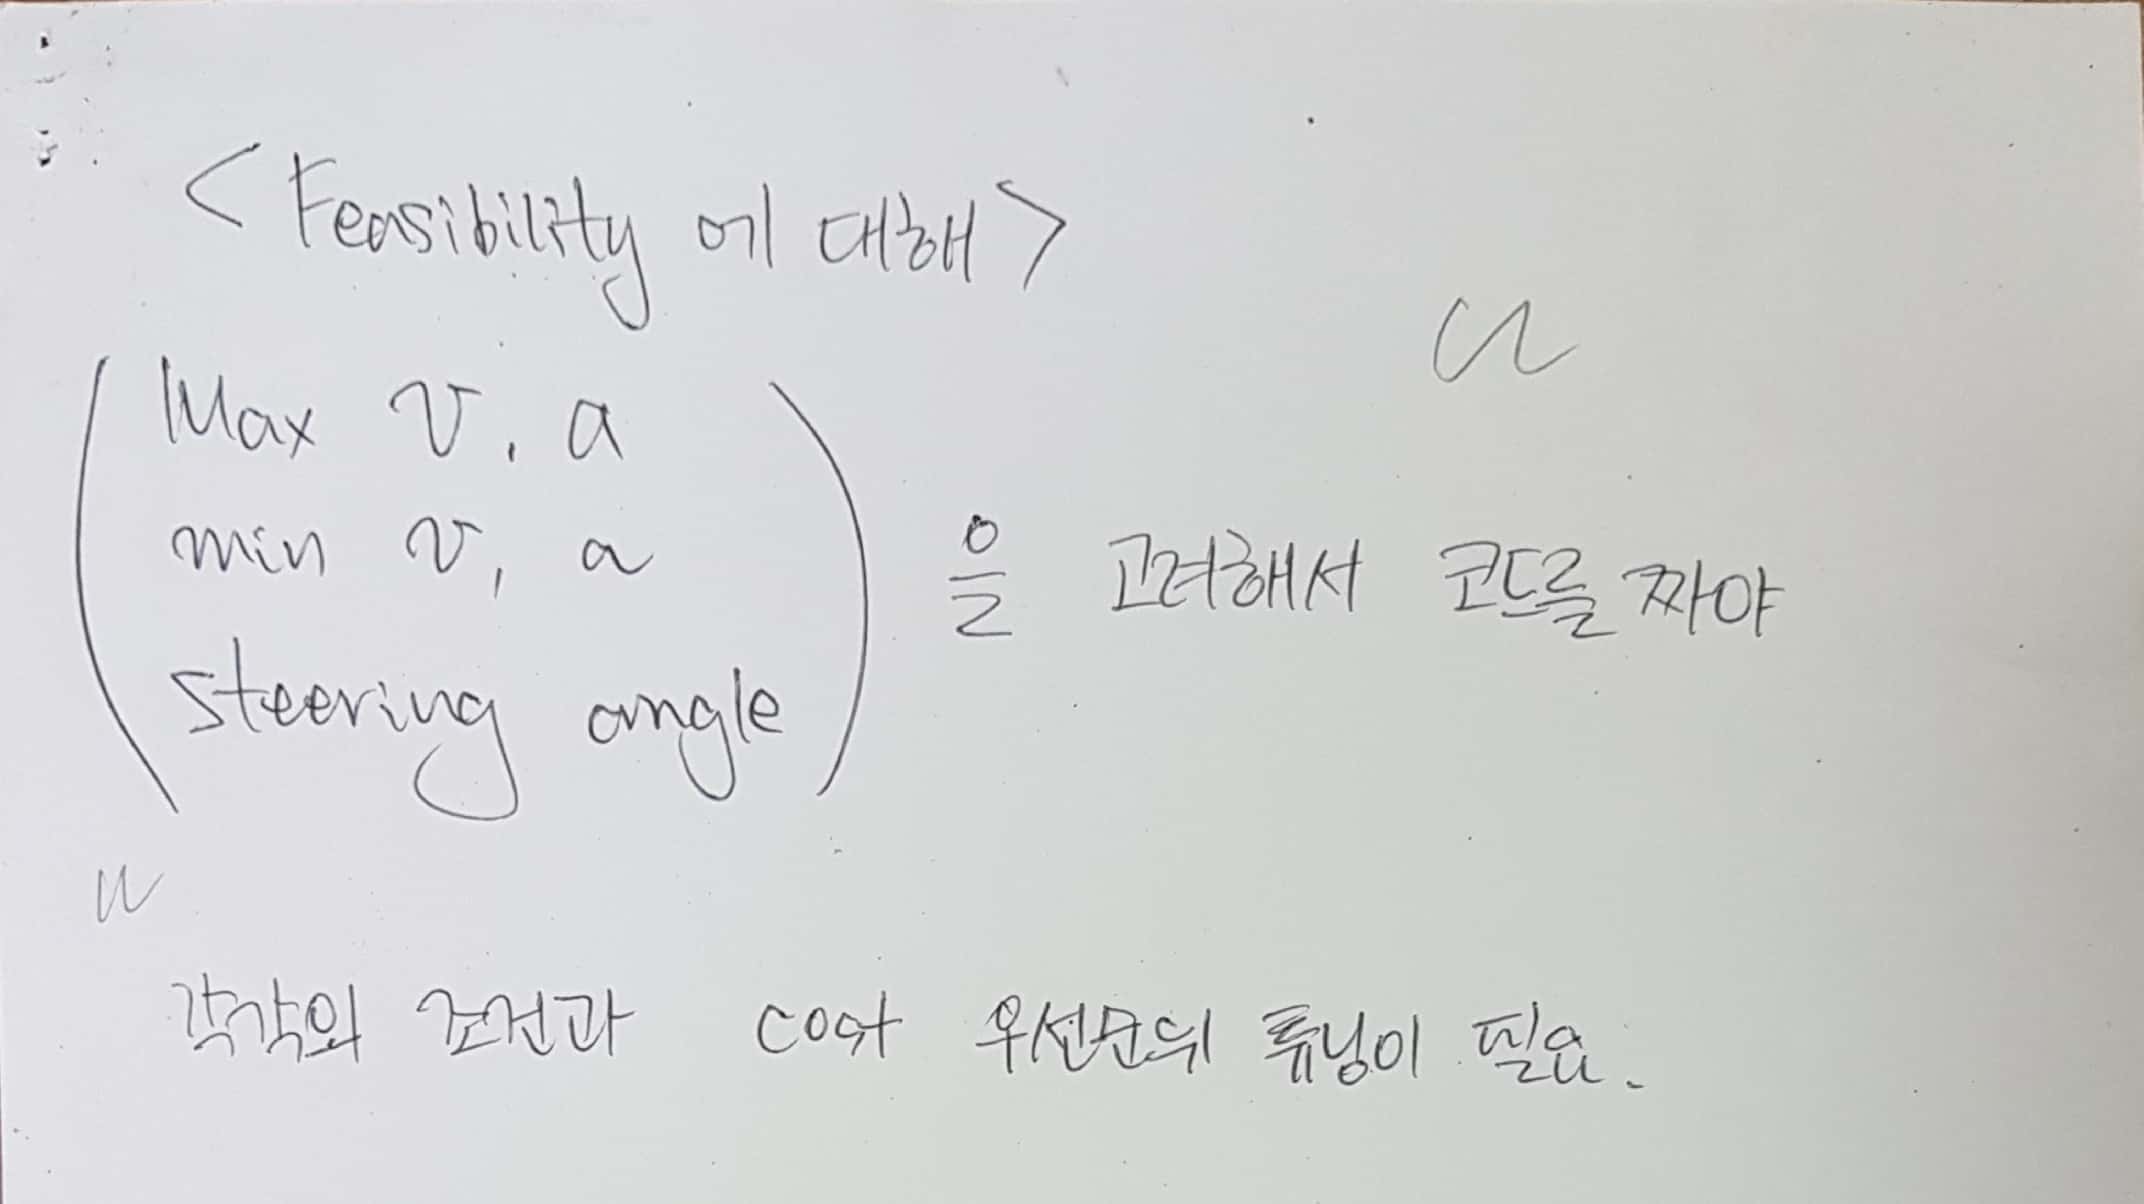 <Feasibility 에 대해>
Max v, a
min v, a
steering angle
을 고려해서 코드를 짜야
각각의 조건과 cost 우선순위 튜닝이 필요.